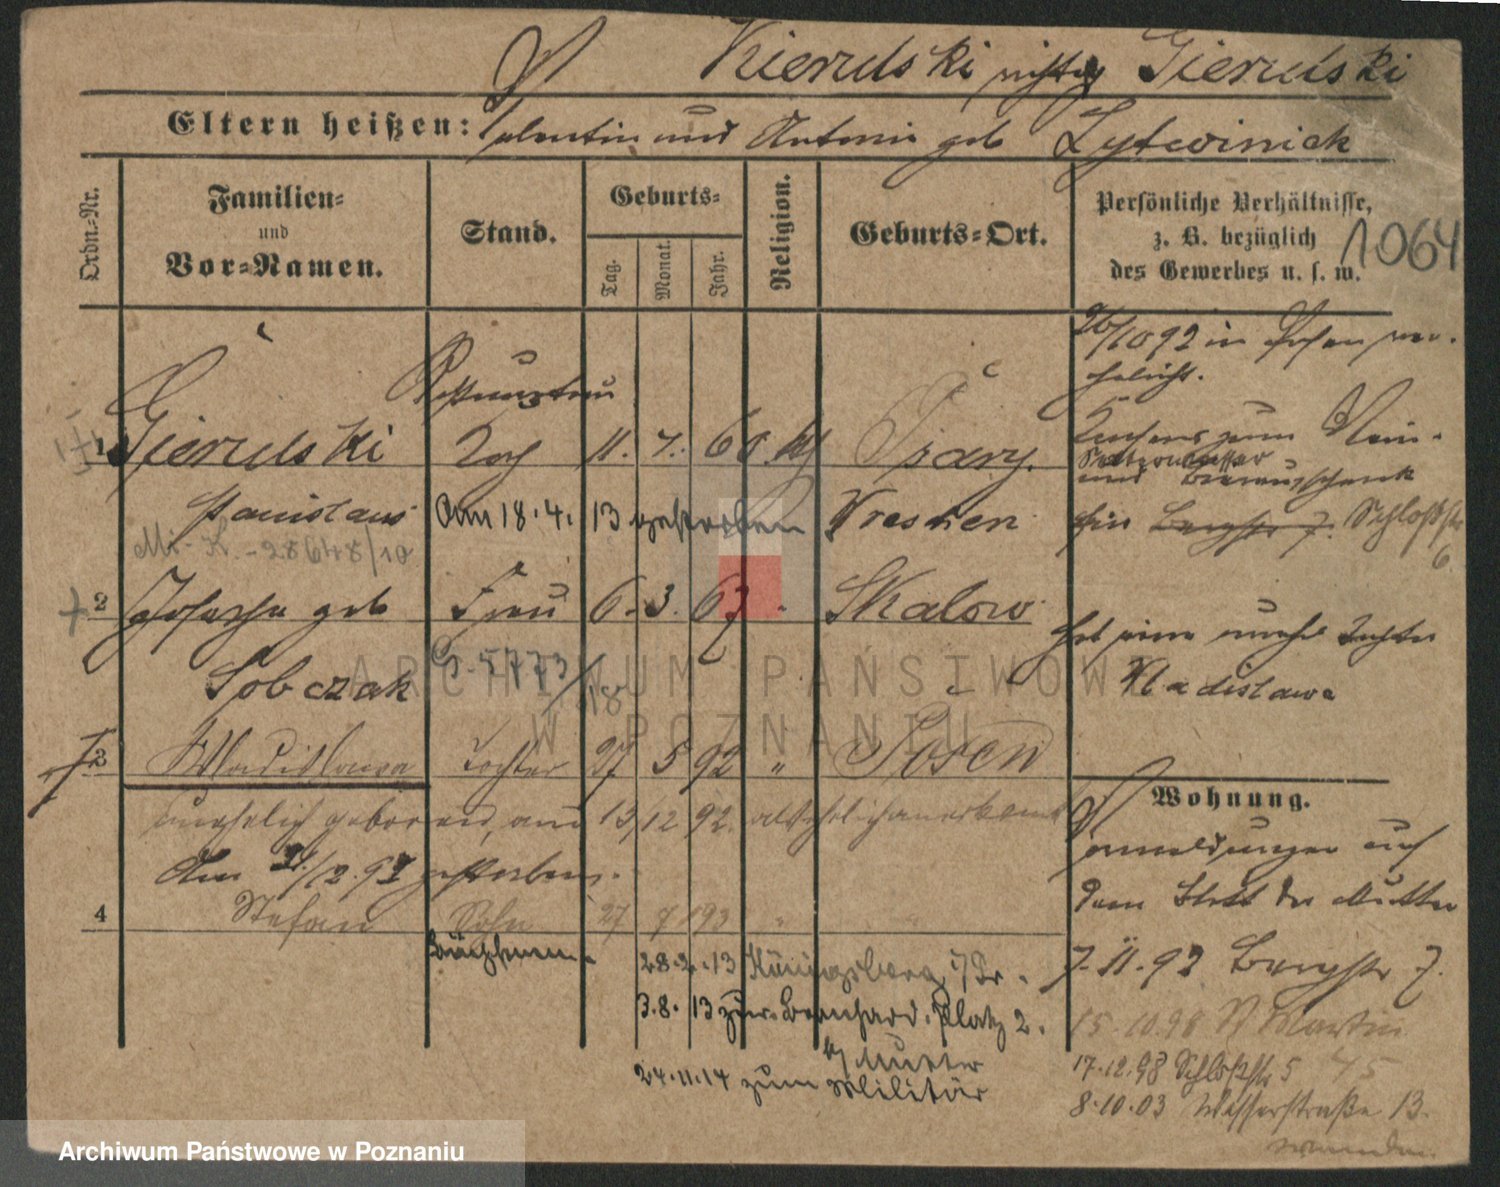 Kierulski richtig Gierulski
Eltern heißen: Valentin und Antonie geb Lytwiniak
Ordn.-Nr.
Familien-
und
Vor-Namen.
Stand.
Geburts-
Tag.
Monat.
Jahr.
Religion.
Geburts-Ort.
Persönliche Verhältnisse,
z. B. bezüglich
des Gewerbes u. s. w.
1064
26/10 92 in Posen ver-
ehelicht.
Restaurateur
1 Gierulski 11. 7. 60 Psary.
Stanislaus Am 18.4.13 gestorben Wreschen
Consens zum Wein-
und Bierausschank
hier Bergstr 7. Schloßstr
6
28648/10
2 Josepha geb Frau 6. 3. 67 " Skalow
Sobczak
G. 5773/18
Hat eine unehel Tochter
Wladislawa
3 Wladislawa Tochter 27 5 92 " Posen
unehelich geboren, am 13/12 92. als ehelich anerkannt
Am 21/12.97 gestorben.
4 Stefan Sohn 27 7 93 "
28.2.13 Königsberg i/Pr.
3.8.13 zur. Bernhard. Platz 2.
b/ Mutter
24.11.14 zum Militär
Wohnung.
Anmeldungen auch
dem Blatt der Mutter
7.11.92 Bergstr 7.
15.10.98 St Martin
45
17.12.98 Schloßstr 5
8.10.03 Wasserstraße 13.
ARCHIWUM PAŃSTWOWE
W POZNANIU
Archiwum Państwowe w Poznaniu